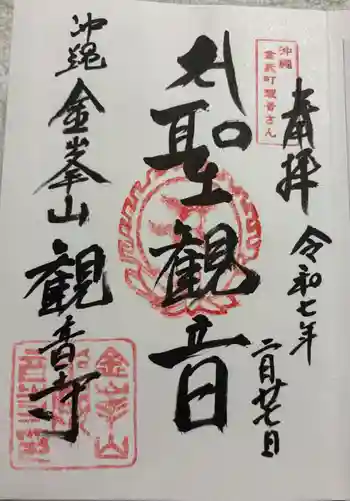 奉拝
令和七年
二月廿七日
沖縄
金武町観音さん
聖観音
沖縄
金峯山
観音寺
金峯山